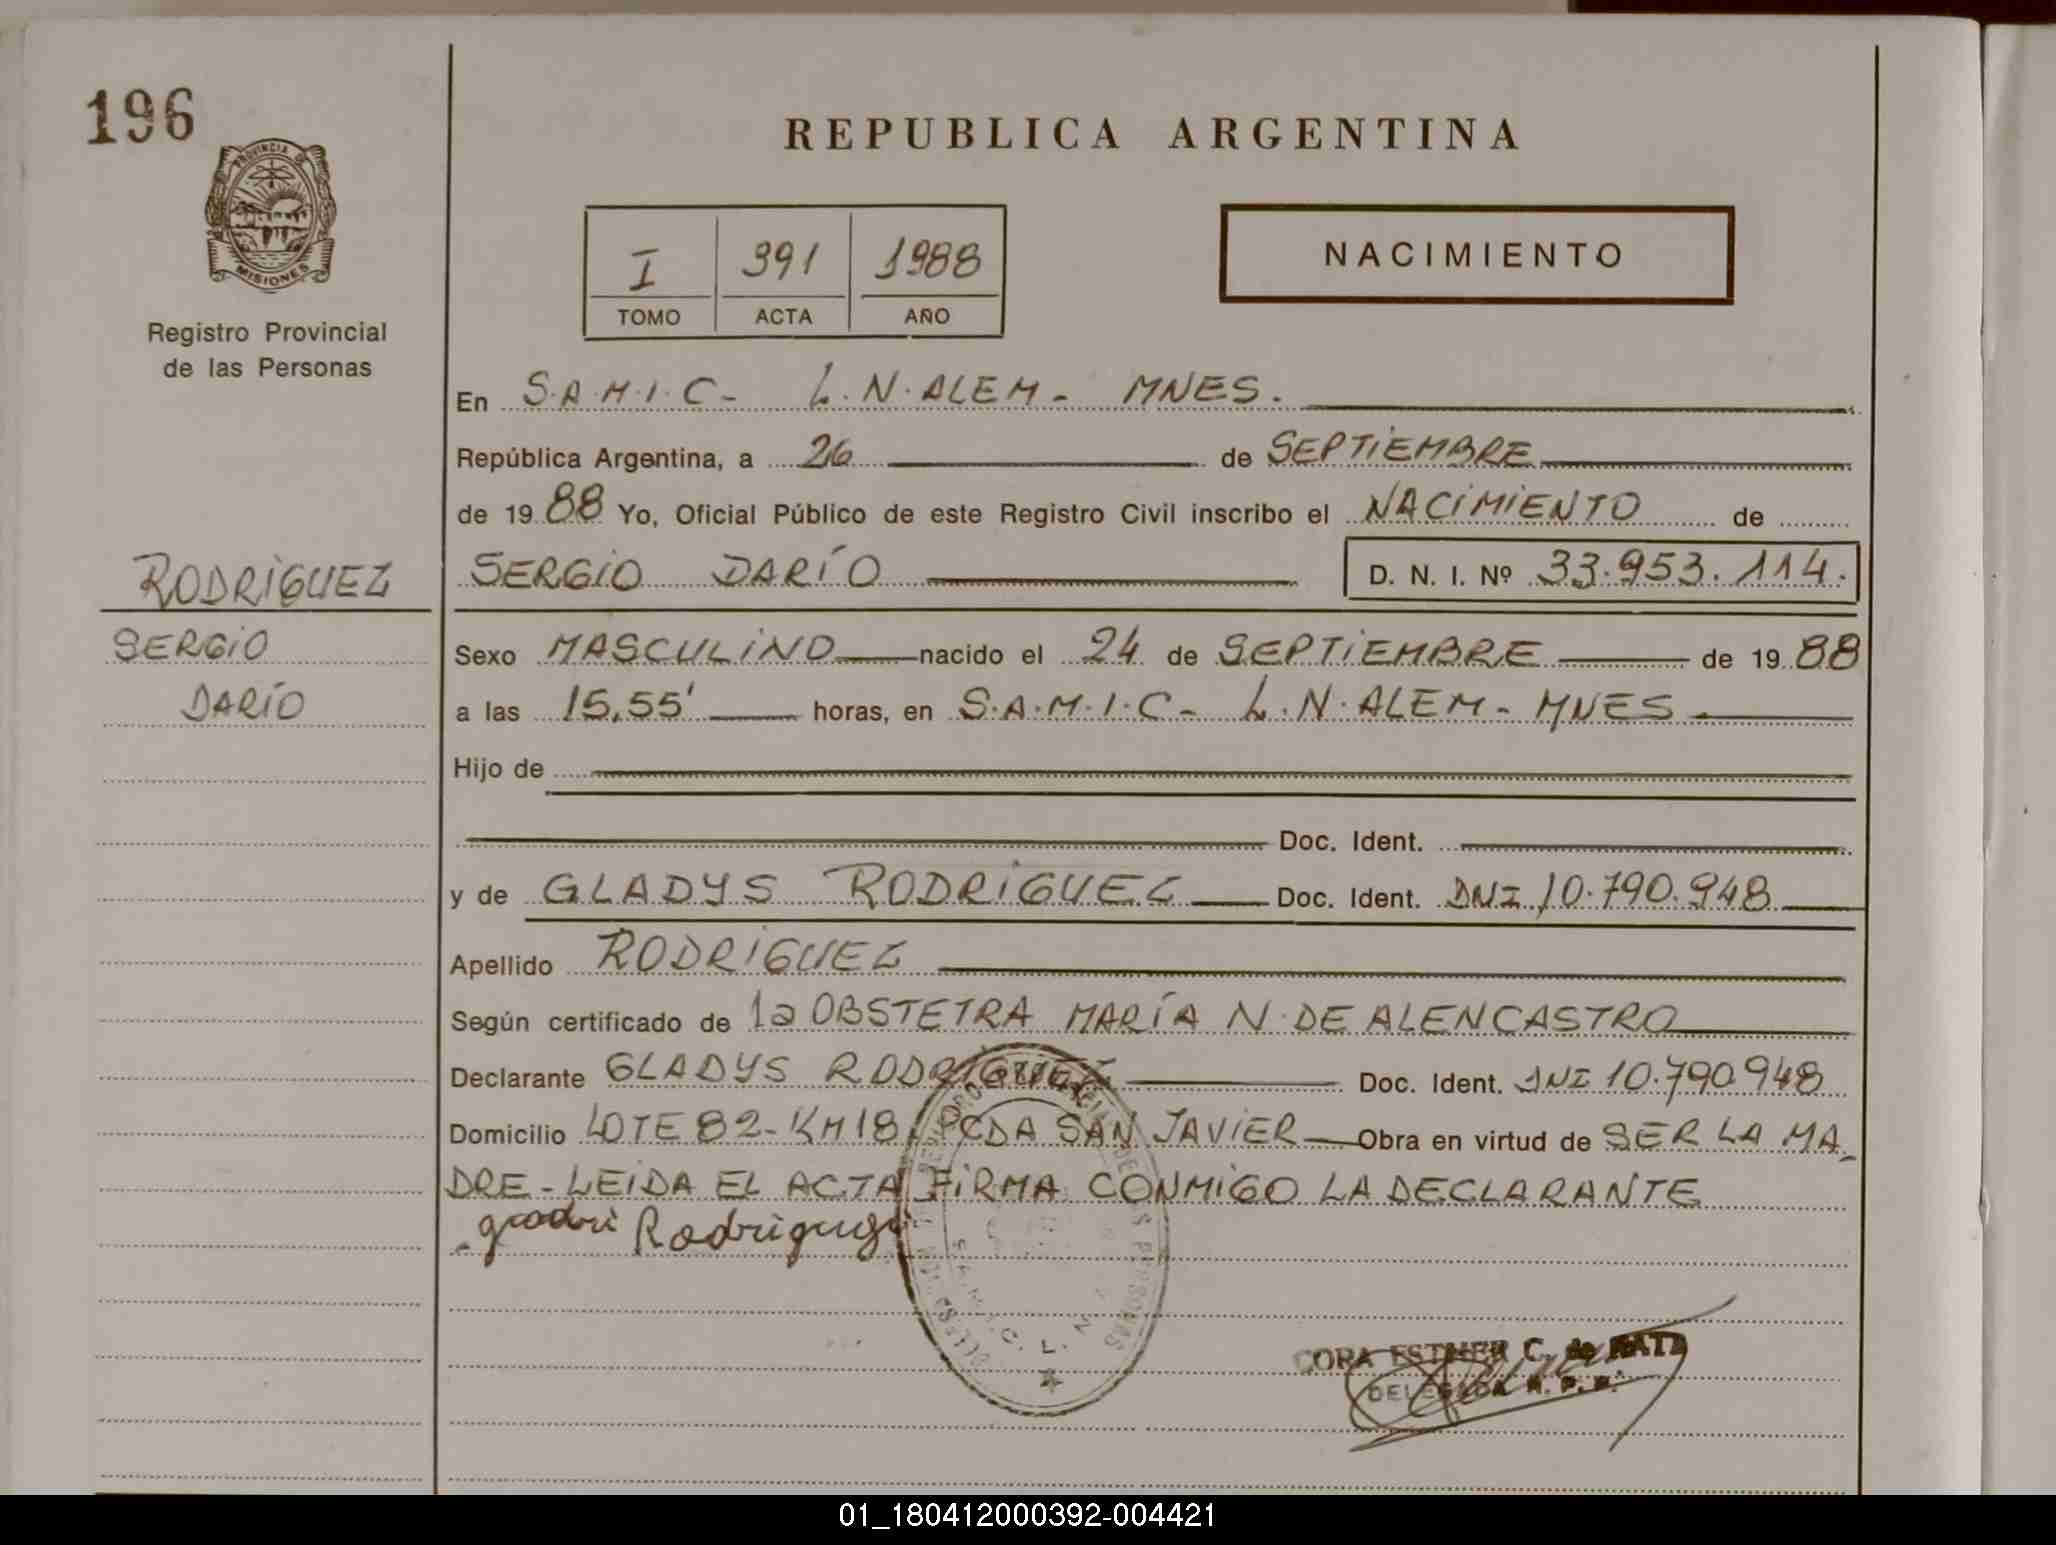 196
PROVINCIA DE
MISIONES
Registro Provincial
de las Personas
REPUBLICA ARGENTINA
I 391 1988
TOMO ACTA AÑO
NACIMIENTO
En S.A.M.I.C- L.N.ALEM- MNES.
República Argentina, a 26 de SEPTIEMBRE
de 1988 Yo, Oficial Público de este Registro Civil inscribo el NACIMIENTO de
RODRIGUEZ
SERGIO DARÍO D. N. I. Nº 33.953.114.
SERGIO
DARÍO
Sexo MASCULINO nacido el 24 de SEPTIEMBRE de 1988
a las 15,55' horas, en S.A.M.I.C- L.N.ALEM- MNES.
Hijo de
Doc. Ident.
y de GLADYS RODRIGUEZ Doc. Ident. DNI 10.790.948
Apellido RODRIGUEZ
Según certificado de la OBSTETRA MARÍA N. DE ALENCASTRO
Declarante GLADYS RODRIGUEZ Doc. Ident. DNI 10.790.948
Domicilio LOTE 82-KM18 PCDA SAN JAVIER Obra en virtud de SER LA MA-
DRE-LEIDA EL ACTA FIRMA CONMIGO LA DECLARANTE
Rodriguez
S.A.M.I.C. L. N.
ESTHER C. de
DELEGADA R. P. P.
01_180412000392-004421